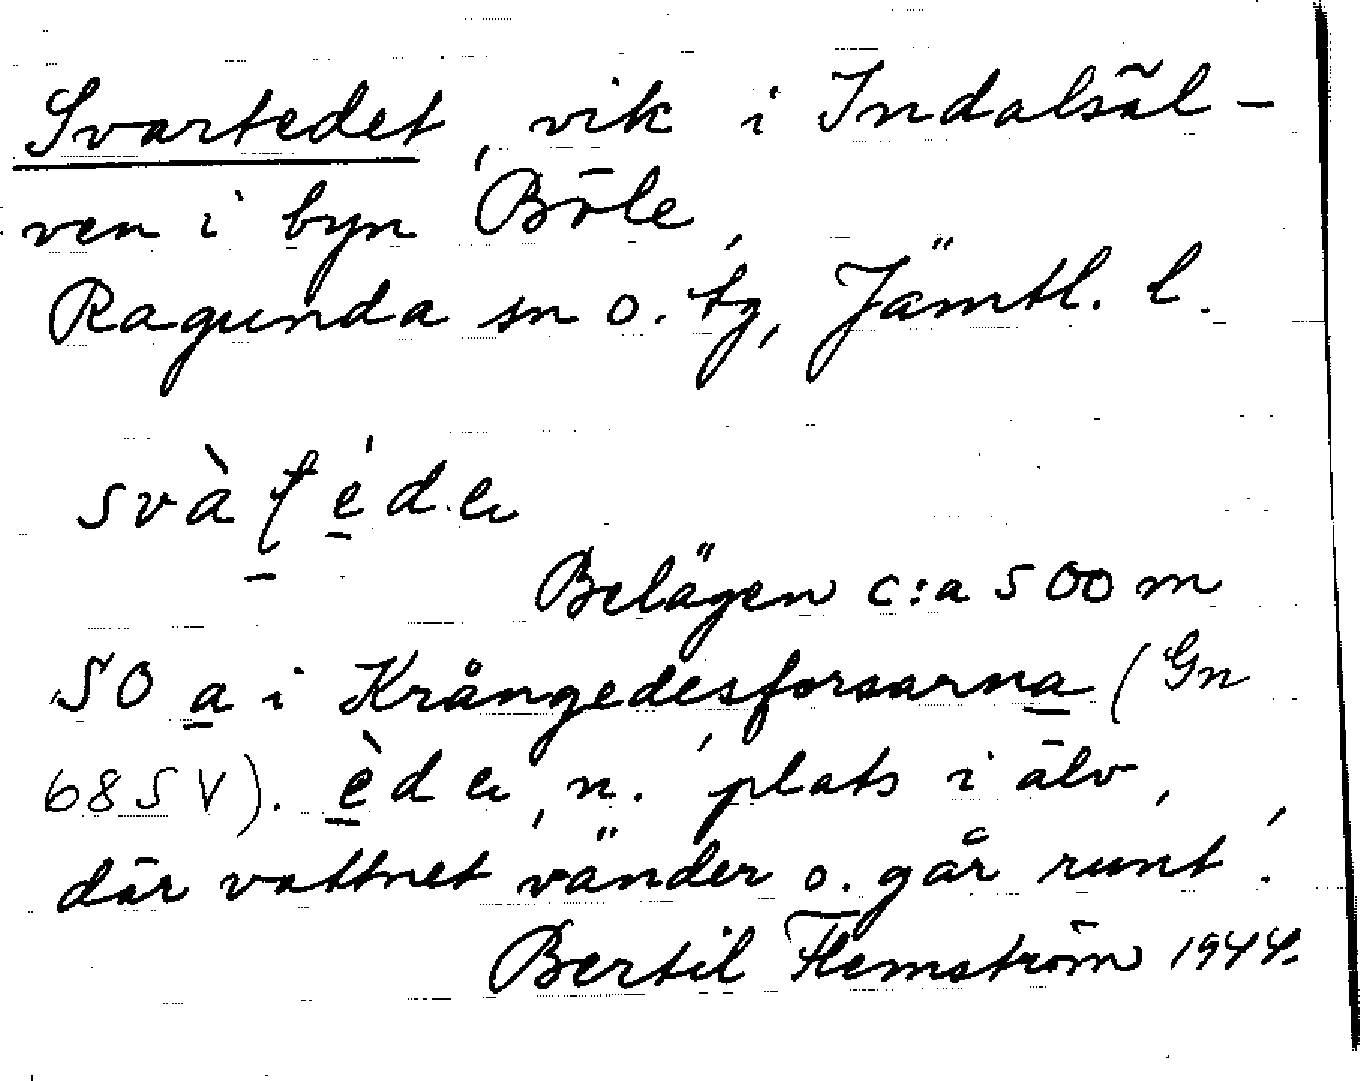 Svartedet, vik i Indalsäl-
ven i byn Böle,
Ragunda sn o. tg, Jämtl. l.
Belägen c:a 500 m
SO a i Krångedesforsarna (Gn
68SV). n. 'plats i älv,
där vattnet vänder o. går runt'.
Bertil Flemström 1944.